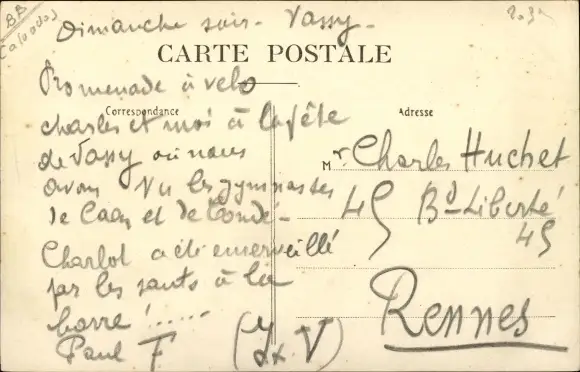 BB
Calvados
Dimanche soir - Vassy -
CARTE POSTALE
Promenade à velo
Correspondance
charles et moi à la fête
de Vassy où nous
avons vu les gymnastes
de Caen et de Condé -
Charlot a été emerveillé
par les sauts à la
barre !.....
Paul F
Adresse
Mr. Charles Huchet
45 Bd Liberté
45
Rennes
(I & V)